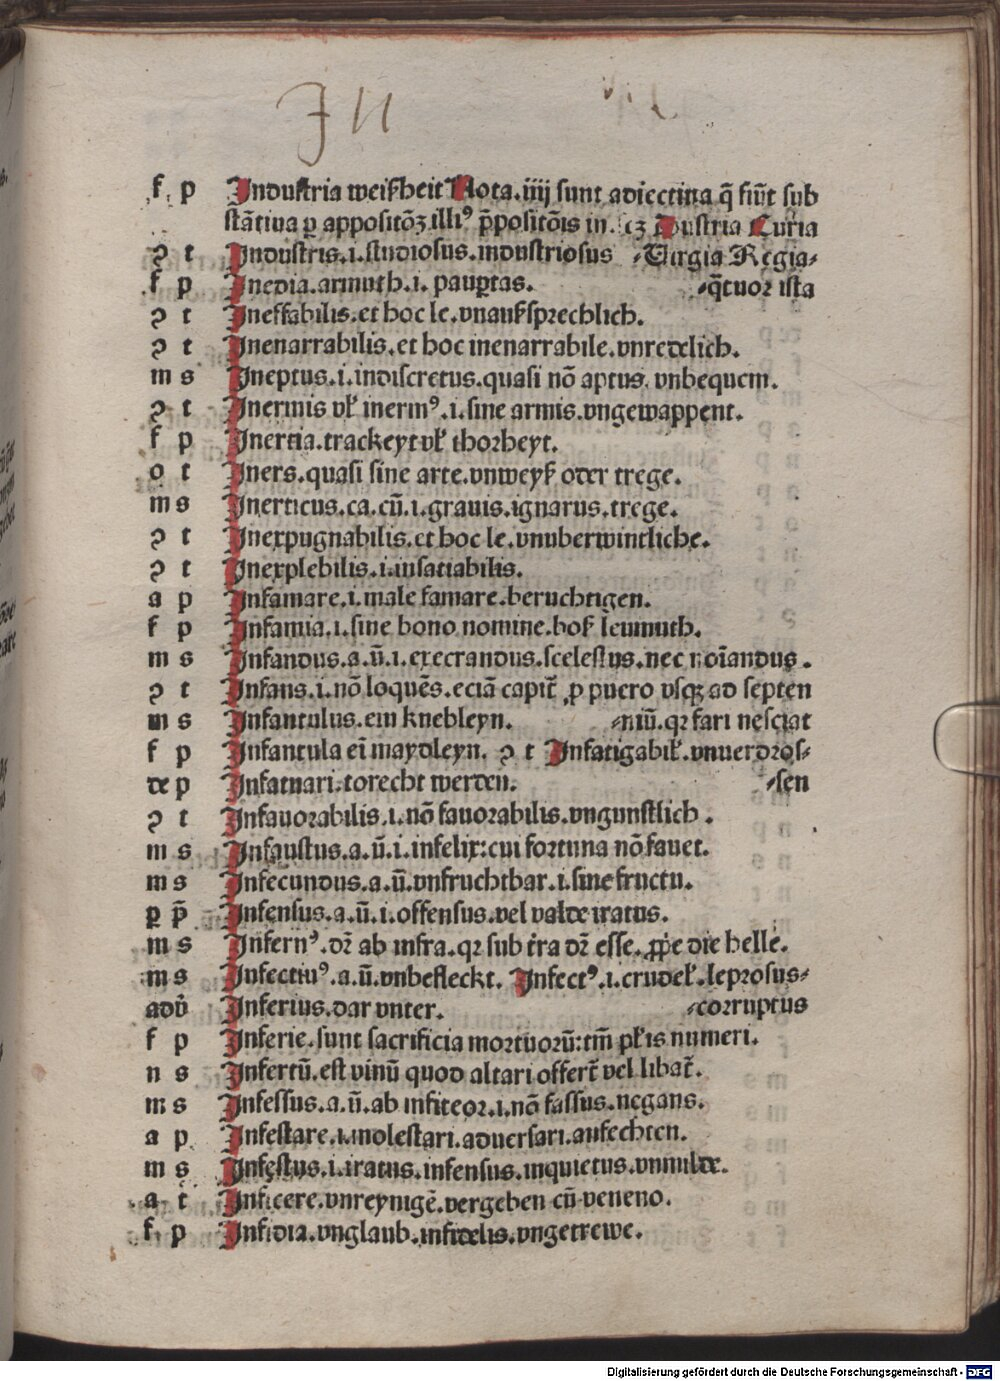 I n
f p Industria weißheit Nota.iiij sunt adiectiua q̄ fiūt sub
stātiua ꝑ appositōꝫ illiꝰ p̄positōis in. scꝫ Industria Curia
ꝯ t Industris.i.studiosus.industriosus -Uirgia Regia-
f p Inedia.armuth.i. pauꝑtas. -q̄tuor ista
ꝯ t Ineffabilis.et hoc le.vnaußsprechlich.
ꝯ t Inenarrabilis.et hoc inenarrabile.vnredelich.
m s Ineptus.i.indiscretus.quasi nō aptus. vnbequem.
ꝯ t Inermis vƚ inermꝰ.i.sine armis.vngewappent.
f p Inertia.trackeyt vƚ thorheyt.
o t Iners.quasi sine arte.vnweyß oder trege.
m s Inerticus.ca.cū.i.grauis.ignarus.trege.
ꝯ t Inexpugnabilis.et hoc le.vnuberwintliche.
ꝯ t Inexplebilis.i.insatiabilis.
a p Infamare.i.male famare.beruchtigen.
f p Infamia.i.sine bono nomine.boß leumuth.
m s Infandus.a.ū.i.execrandus.scelestus.nec noīandus.
ꝯ t Infans.i.nō loquēs.eciā capit̄ ꝓ puero vsqꝫ ad septen
m s Infantulus.ein knebleyn. -niū.qꝛ fari nesciat
f p Infantula eī maydleyn. ꝯ t Infatigabiƚ.vnuerdros-
de p Infatuari.torecht werden. -sen
ꝯ t Infauorabilis.i.nō fauorabilis.vngunstlich.
m s Infaustus.a.ū.i.infelix:cui fortuna nō fauet.
m s Infecundus.a.ū.vnfruchtbar.i.sine fructu.
ꝑ p̄ Infensus.a.ū.i.offensus.vel valde iratus.
m s Infernꝰ.dr̄ ab infra.qꝛ sub t̄ra dr̄ esse.ꝓp̄e die helle.
m s Infectiuꝰ.a.ū.vnbefleckt. Infectꝰ.i.crudeƚ.leprosus-
adv̄ Inferius.dar vnter. -corruptus
f p Inferie.sunt sacrificia mortuorū:tm̄ pƚis numeri.
n s Infertū.est vinū quod altari offert̄ vel libat̄.
m s Infessus.a.ū.ab infiteor.i.nō fassus.negans.
a p Infestare.i.molestari.aduersari.anfechten.
m s Infestus.i.iratus.infensus.inquietus.vnmilde.
a t Inficere.vnreynigē.vergeben cū veneno.
f p Infidia.vnglaub.infidelis.vngetrewe.
Digitalisierung gefördert durch die Deutsche Forschungsgemeinschaft - DFG